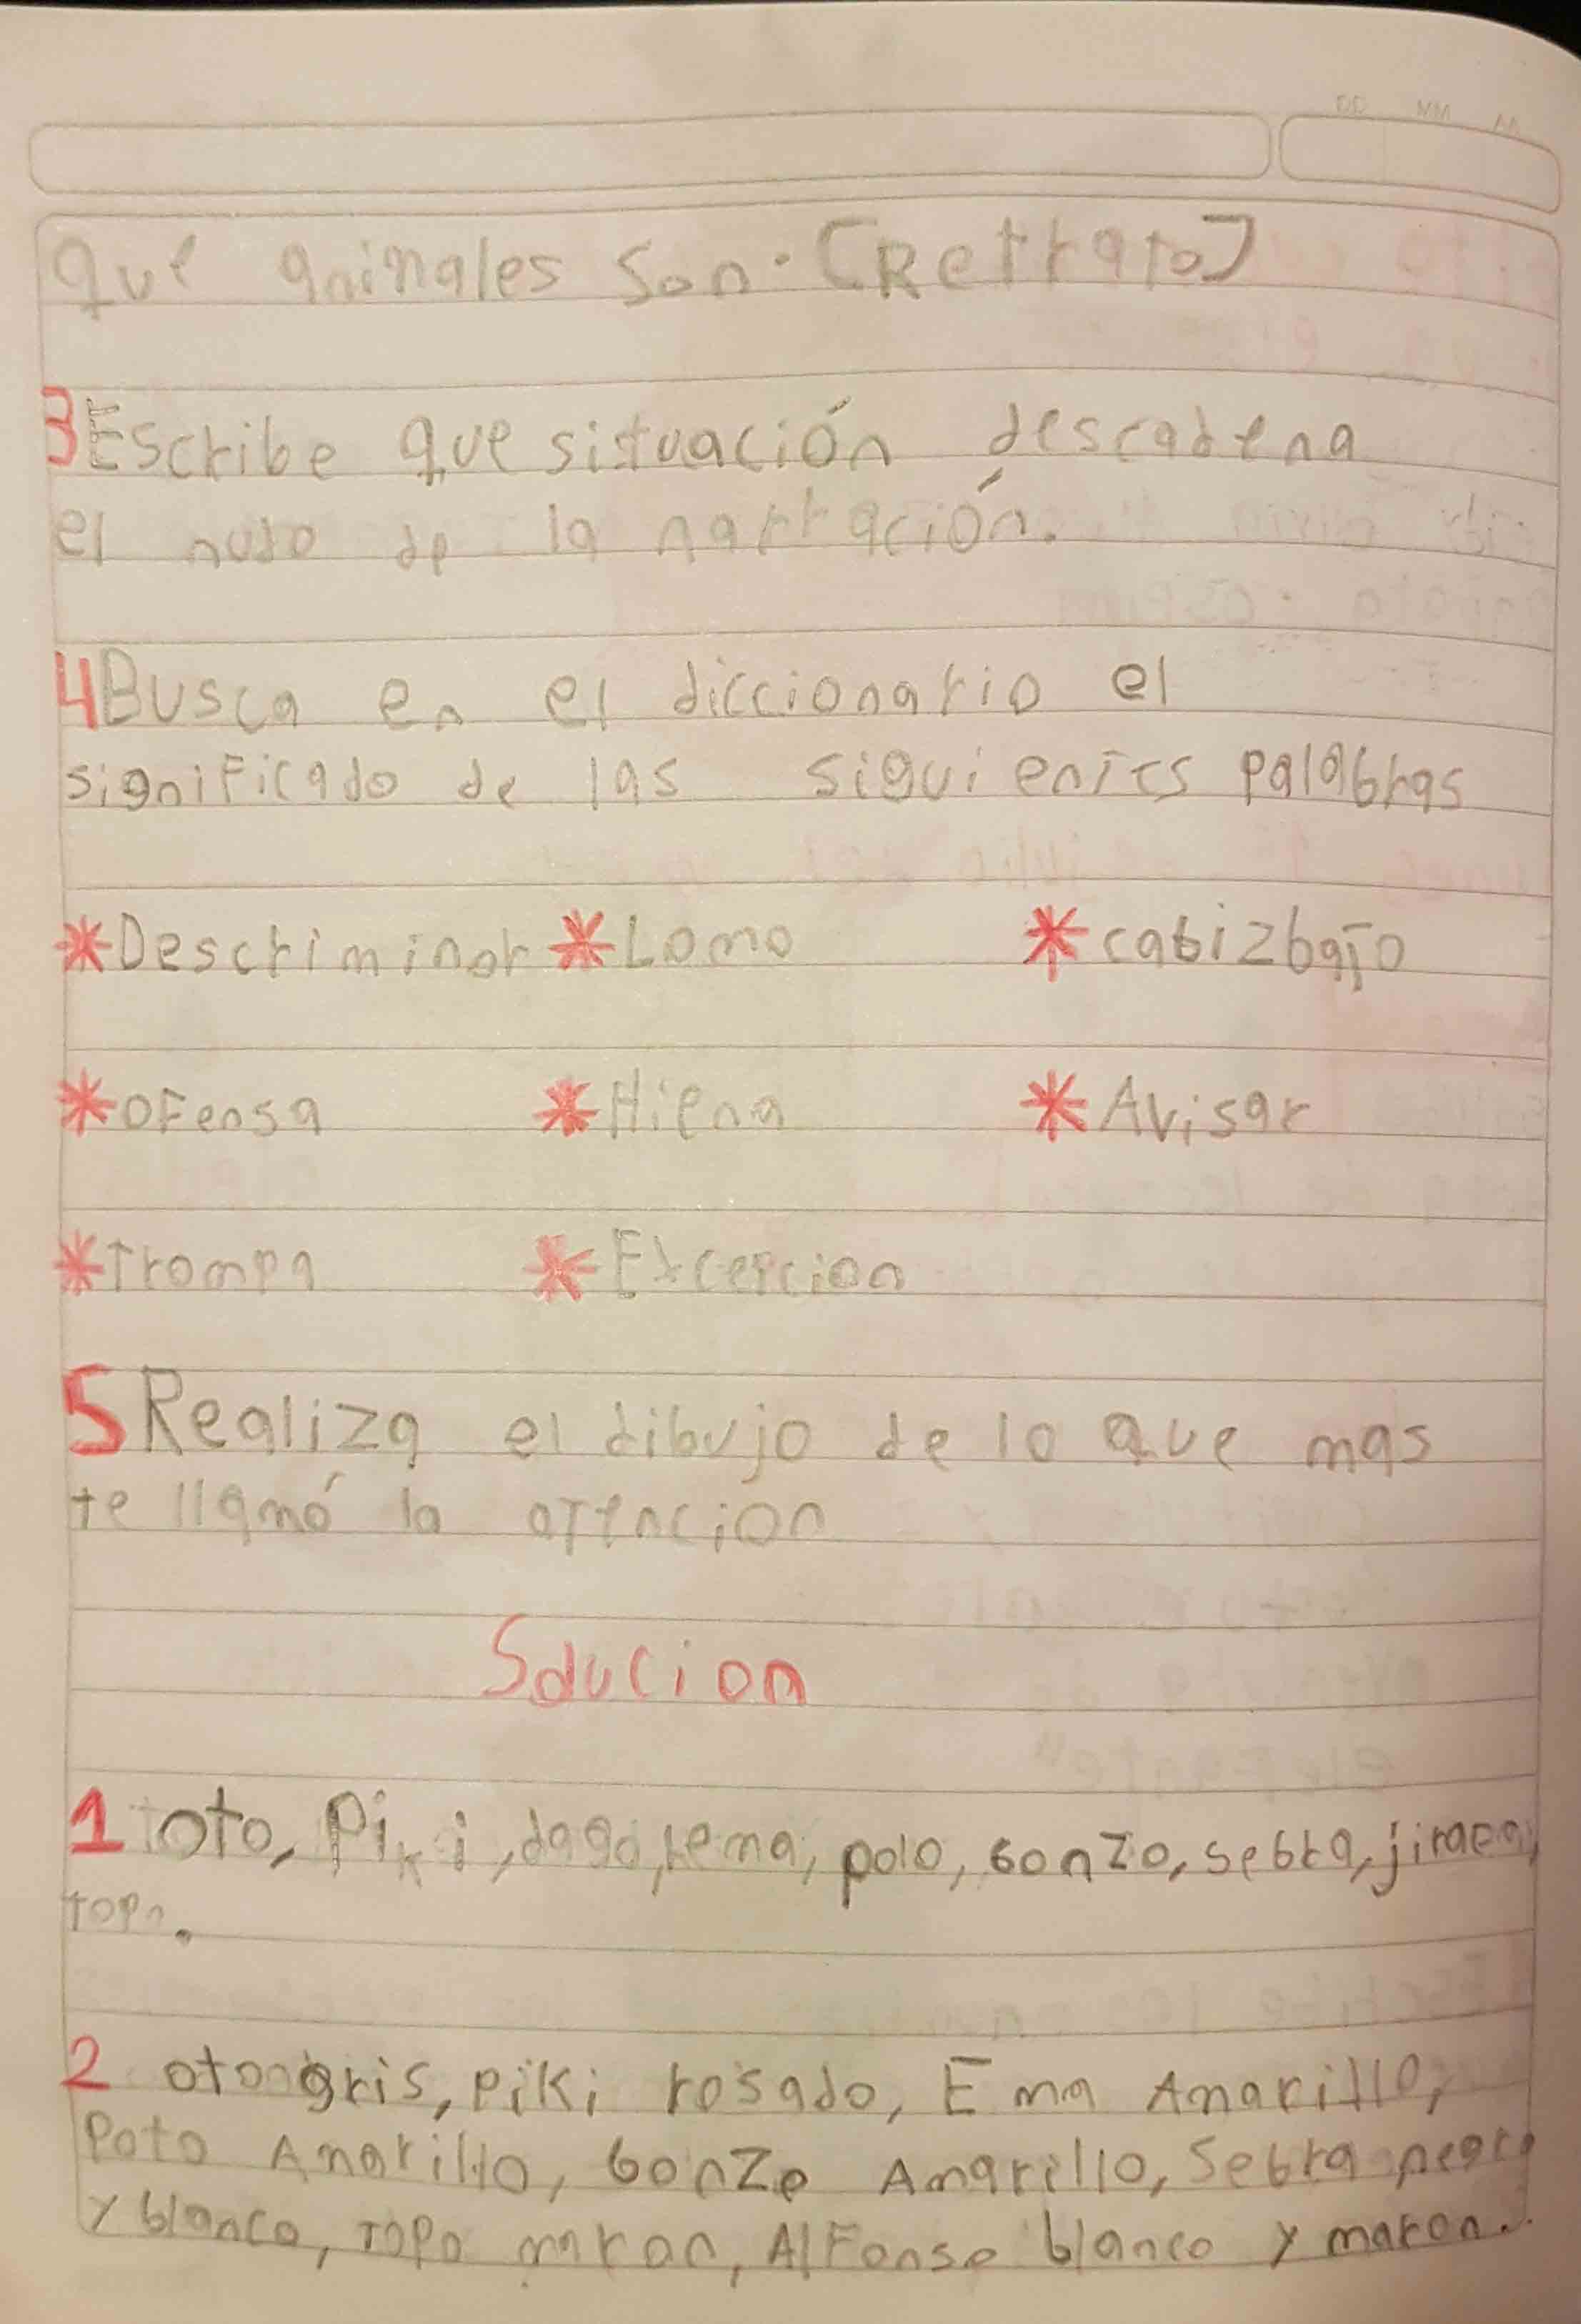 DD MM AA
que animales son. (Retrato)
3 Escribe que situación descadena
el nudo de la narración.
4 Busca en el diccionario el
significado de las siguientes palabras
* Descriminar * Lomo * cabizbajo
* oFensa * Hiena * Avisar
* Trompa * Excepcion
5 Realiza el dibujo de lo que mas
te llamó la atencion
Solucion
1 oto, Piki, dago, polo, Gonzo, sebra,
topo.
2 oto gris, piki rosado, Ema Amarillo,
Poto Amarillo, Gonzo Amarillo, Sebra negro
y blanco, topo maron, AlFonso blanco y maron.